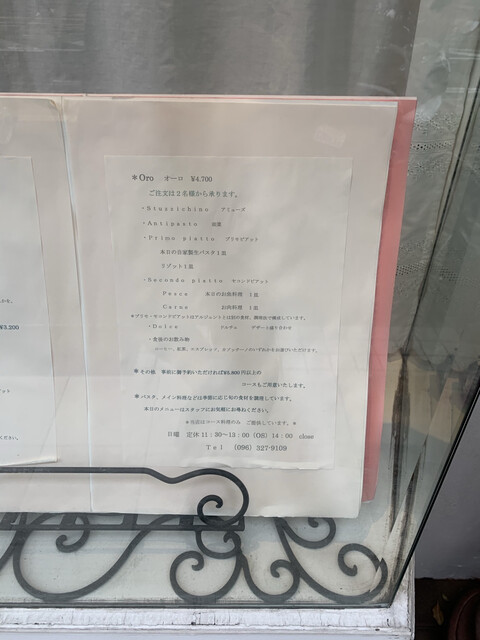 *Oro オーロ ¥4.700
ご注文は2名様から承ります。
・Stuzzichino アミューズ
・Antipasto 前菜
・Primo piatto プリモピアット
本日の自家製生パスタ1皿
リゾット1皿
・Secondo piatto セコンドピアット
Pesce 本日のお魚料理 1皿
Carne お肉料理 1皿
*プリモ・セコンドピアットはアルジェントとは別の食材、調理法で構成しています。
・Dolce ドルチェ デザート盛り合わせ
・食後のお飲み物
コーヒー、紅茶、エスプレッソ、カプチーノからいずれかをお選びいただけます。
*その他 事前に御予約いただければ
以上の
コースもご用意いたします。
*パスタ、メイン料理などは季節に応じ旬の食材を調理しています。
本日のメニューはスタッフにお気軽にお尋ねください。
*当店はコース料理のみ ご提供しています。*
日曜 定休 11:30~13:00 (OS) 14:00 close
Tel (096) 327-9109
¥3.200
ください。